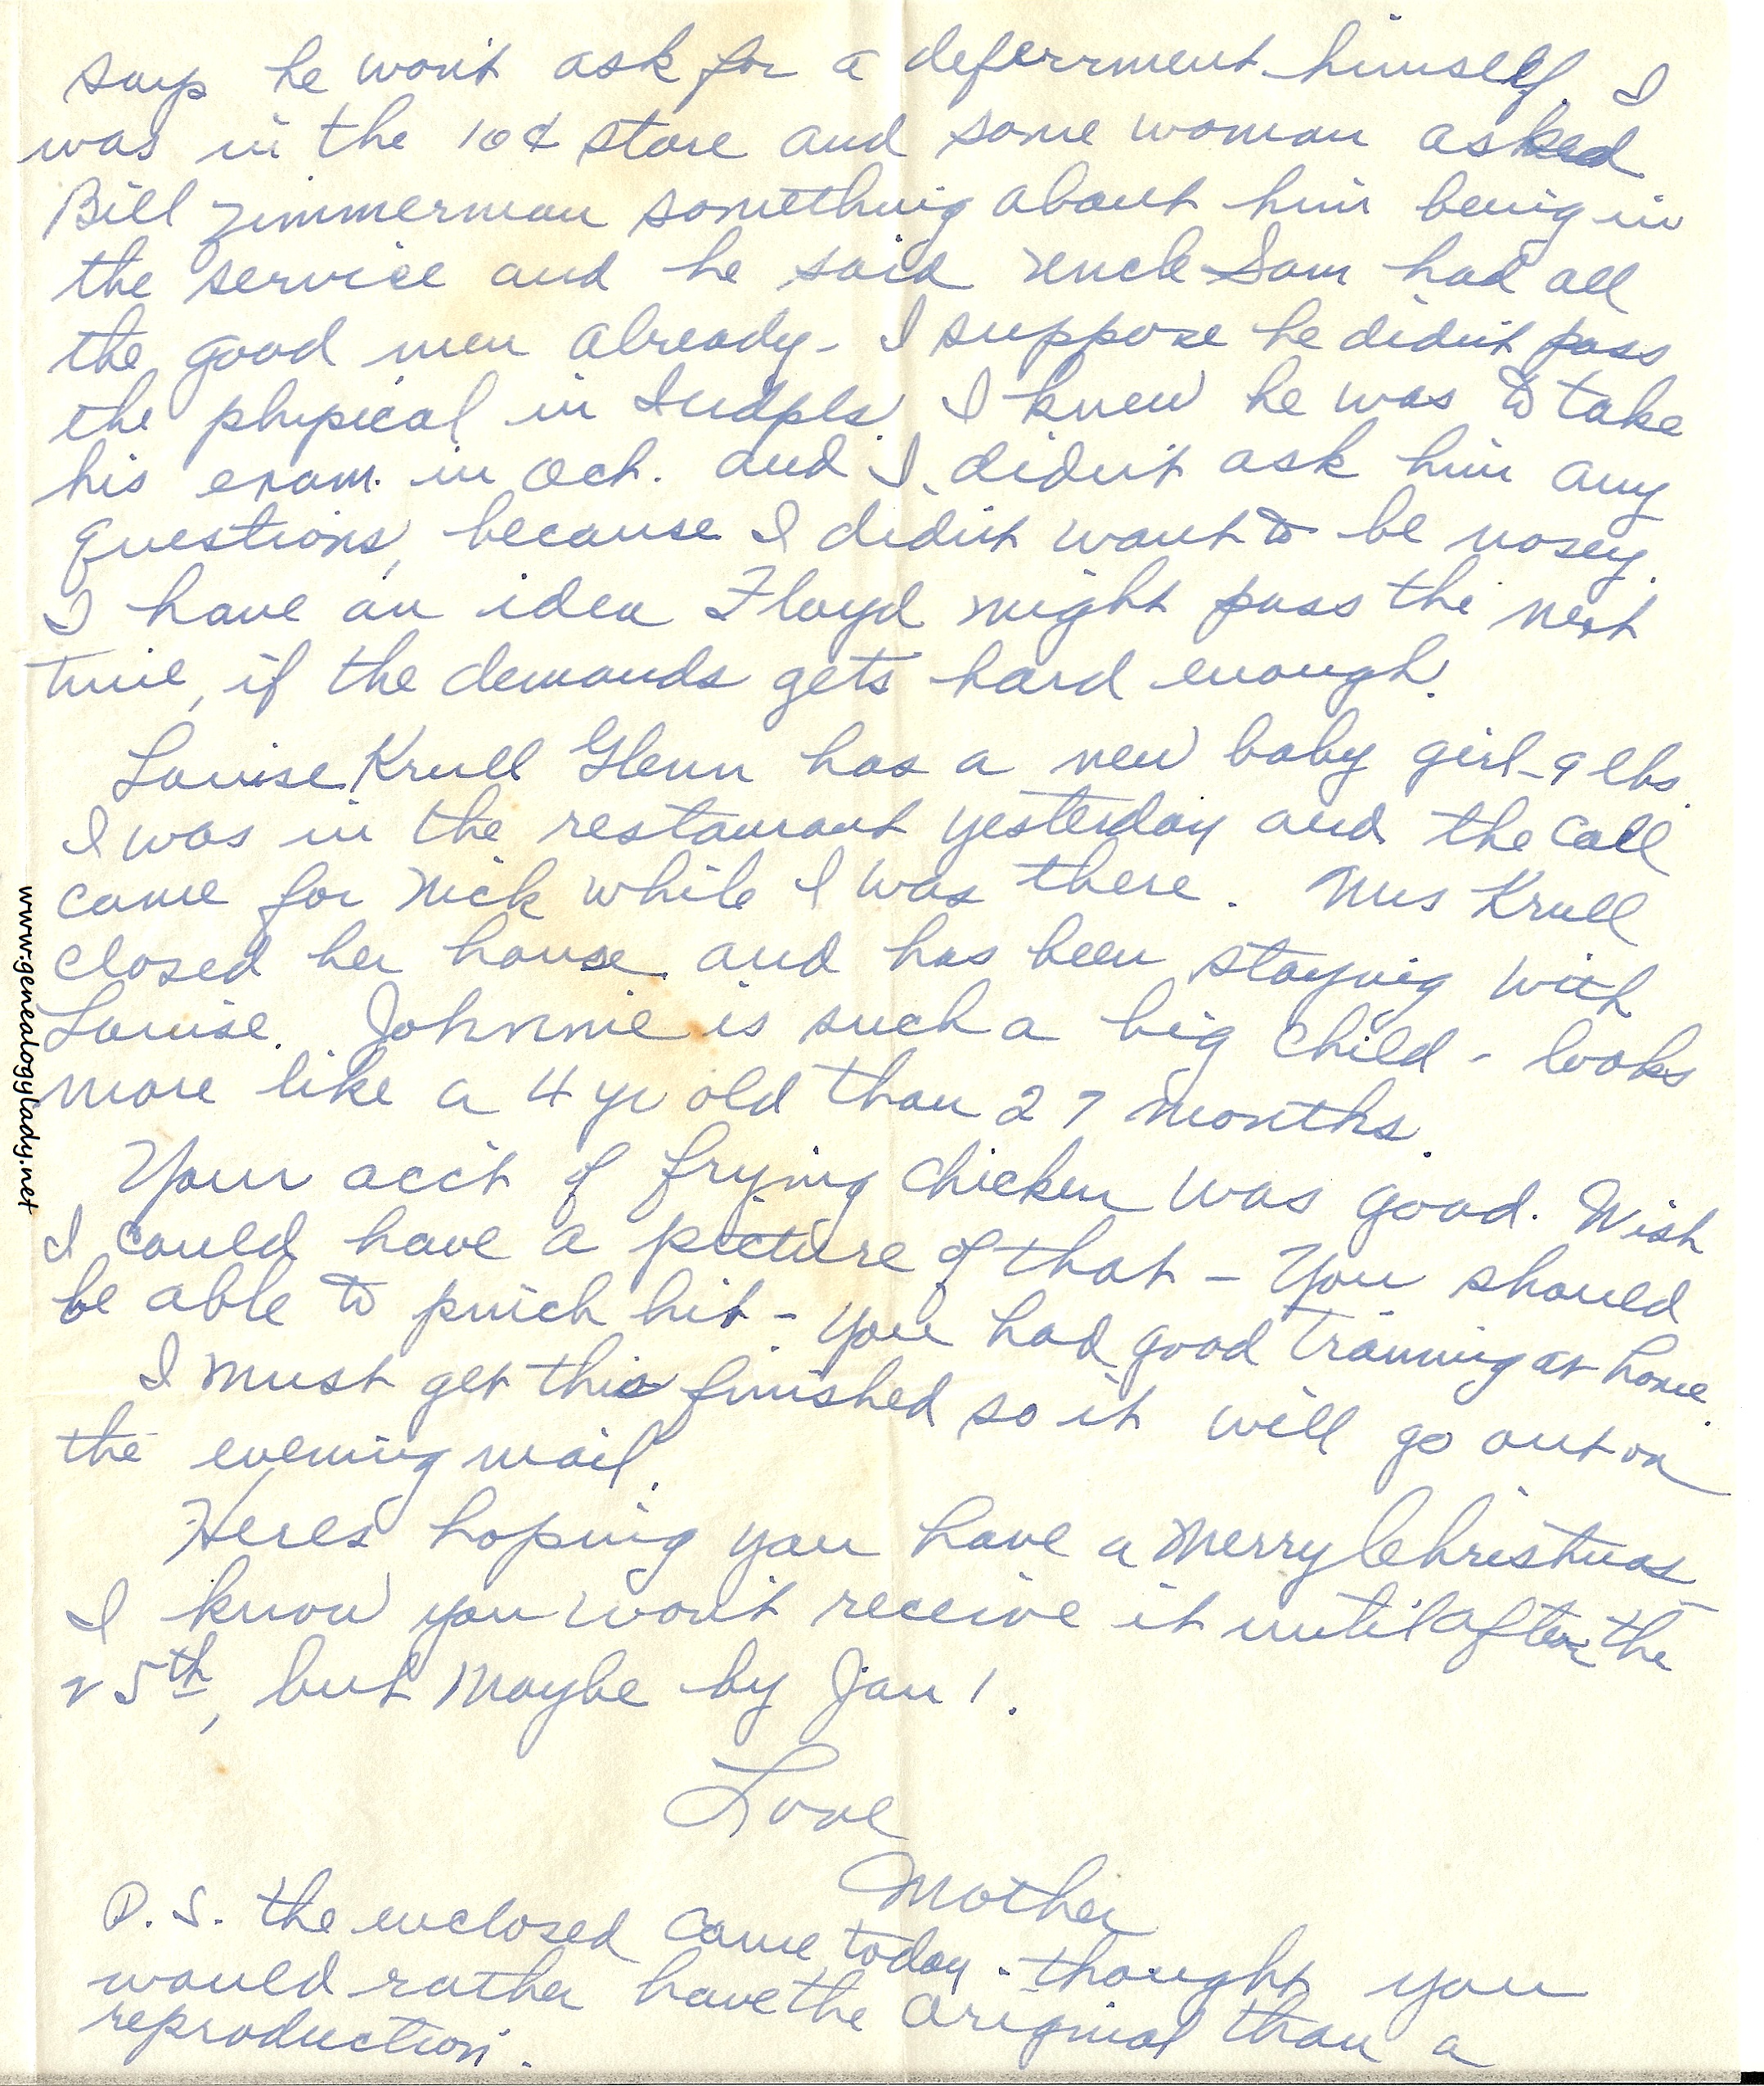 says he won't ask for a deferrment himself. I
was in the 10¢ store and some woman asked
Bill Zimmerman something about him being in
the service and he said Uncle Sam had all
the good men already - I suppose he didn't pass
the physical in Indpls. I knew he was to take
his exam. in Oct. and I didn't ask him any
questions, because I didn't want to be nosey.
I have an idea Floyd might pass the next
time, if the demands gets hard enough.
Louise Krull Glenn has a new baby girl - 9 lbs.
I was in the restaurant yesterday and the call
came for Nick while I was there. Mrs Krull
closed her house and has been staying with
Louise. Johnnie is such a big child - looks
more like a 4 yr old than 27 months.
Your acc't of frying chicken was good. Wish
I could have a picture of that - You should
be able to pinch hit - you had good training at home.
I must get this finished so it will go out on
the evening mail.
Heres hoping you have a Merry Christmas
I know you won't receive it until after the
25th, but maybe by Jan 1.
Love
Mother
P.S. the enclosed came today - thought you
would rather have the original than a
reproduction.
www.genealogylady.net